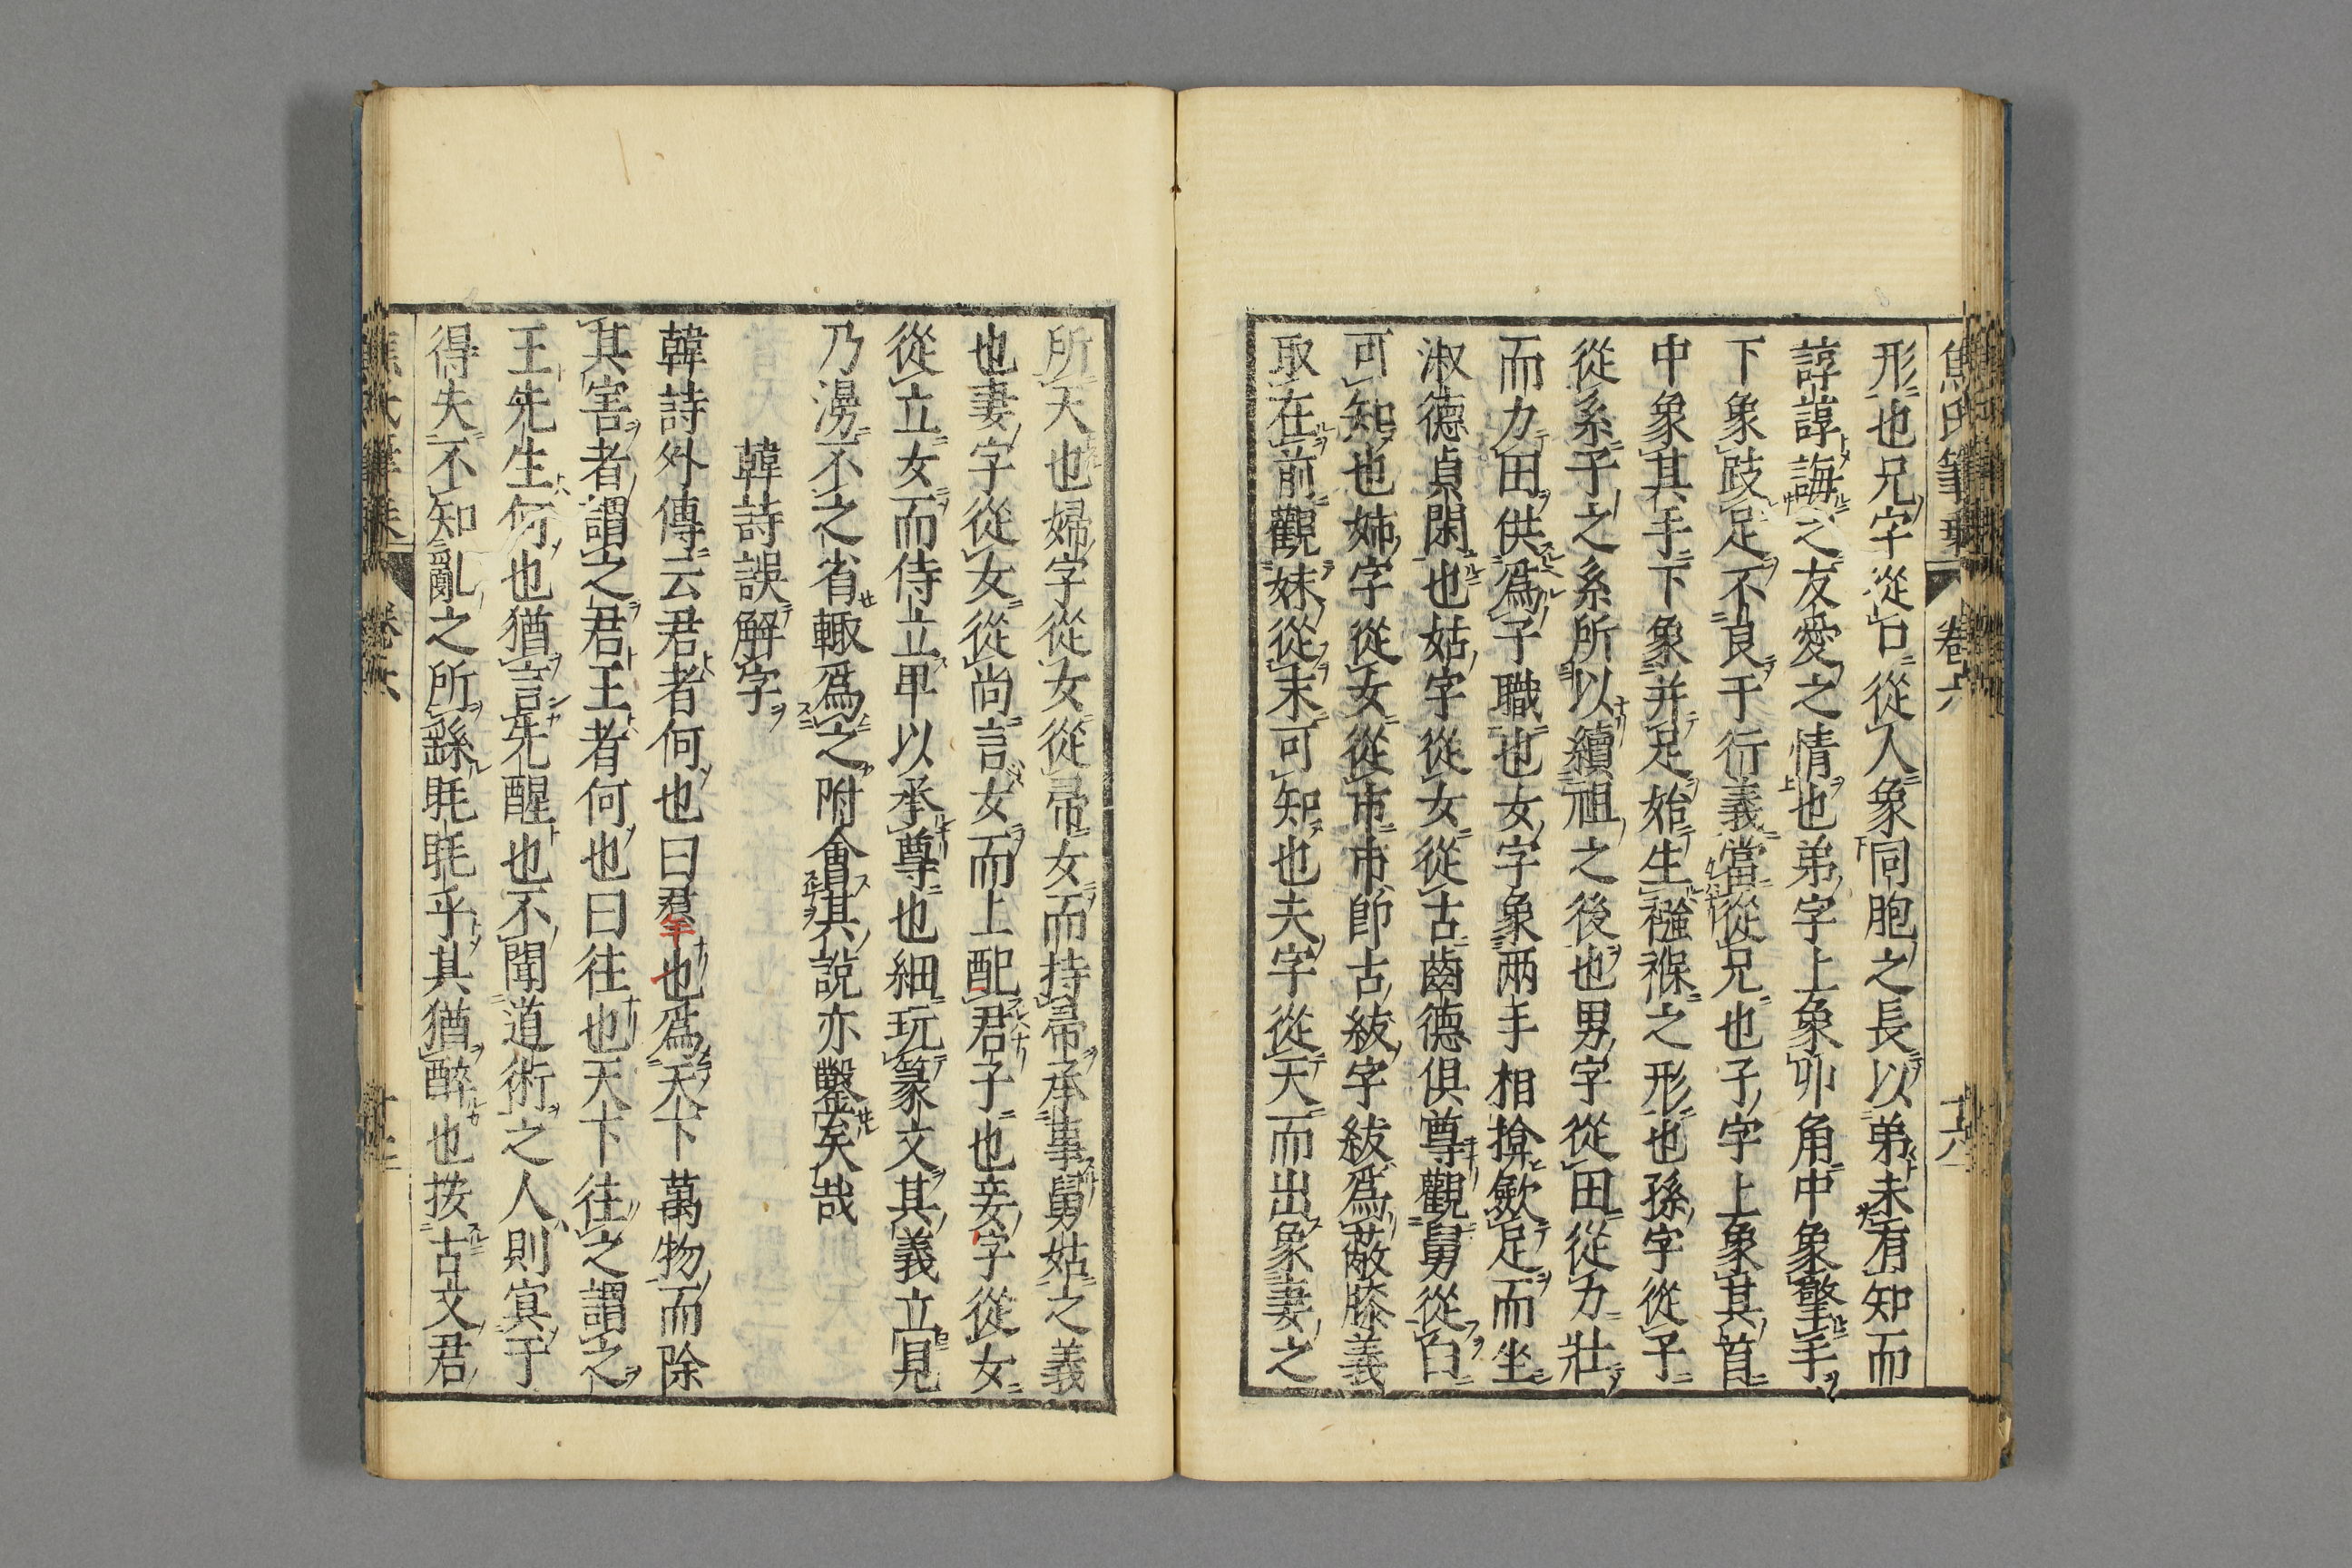 焦氏筆乗 卷六 十六
形也兄字從口從人象同胞之長以弟未有知而
諄諄誨之友愛之情也弟字上象丱角中象擎手
下象跂足不良于行義當從兄也子字上象其首
中象其手下象并足始生襁褓之形也孫字從子
從系子之系所以續祖之後也男字從田從力壯
而力田供爲子職也女字象兩手相揜斂足而坐
淑德貞閑也姑字從女從古齒德俱尊觀舅從臼
可知也姊字從女從巿巿卽古紱字紱爲蔽膝義
取在前觀妹從末可知也夫字從天而出象妻之
所天也婦字從女從帚女而持帚承事舅姑之義
也妻字從女從尚言女而上配君子也妾字從女
從立女而侍立甲以承尊也細玩篆文其義立見
乃漫不之省輙爲之附會其說亦鑿矣哉
韓詩誤解字
韓詩外傳云君者何也曰羣也爲天下萬物而除
其害者謂之君王者何也曰往也天下往之謂之
王先生何也猶言先醒也不聞道術之人則冥于
得失不知亂之所繇眊眊乎其猶醉也按古文君
卷六